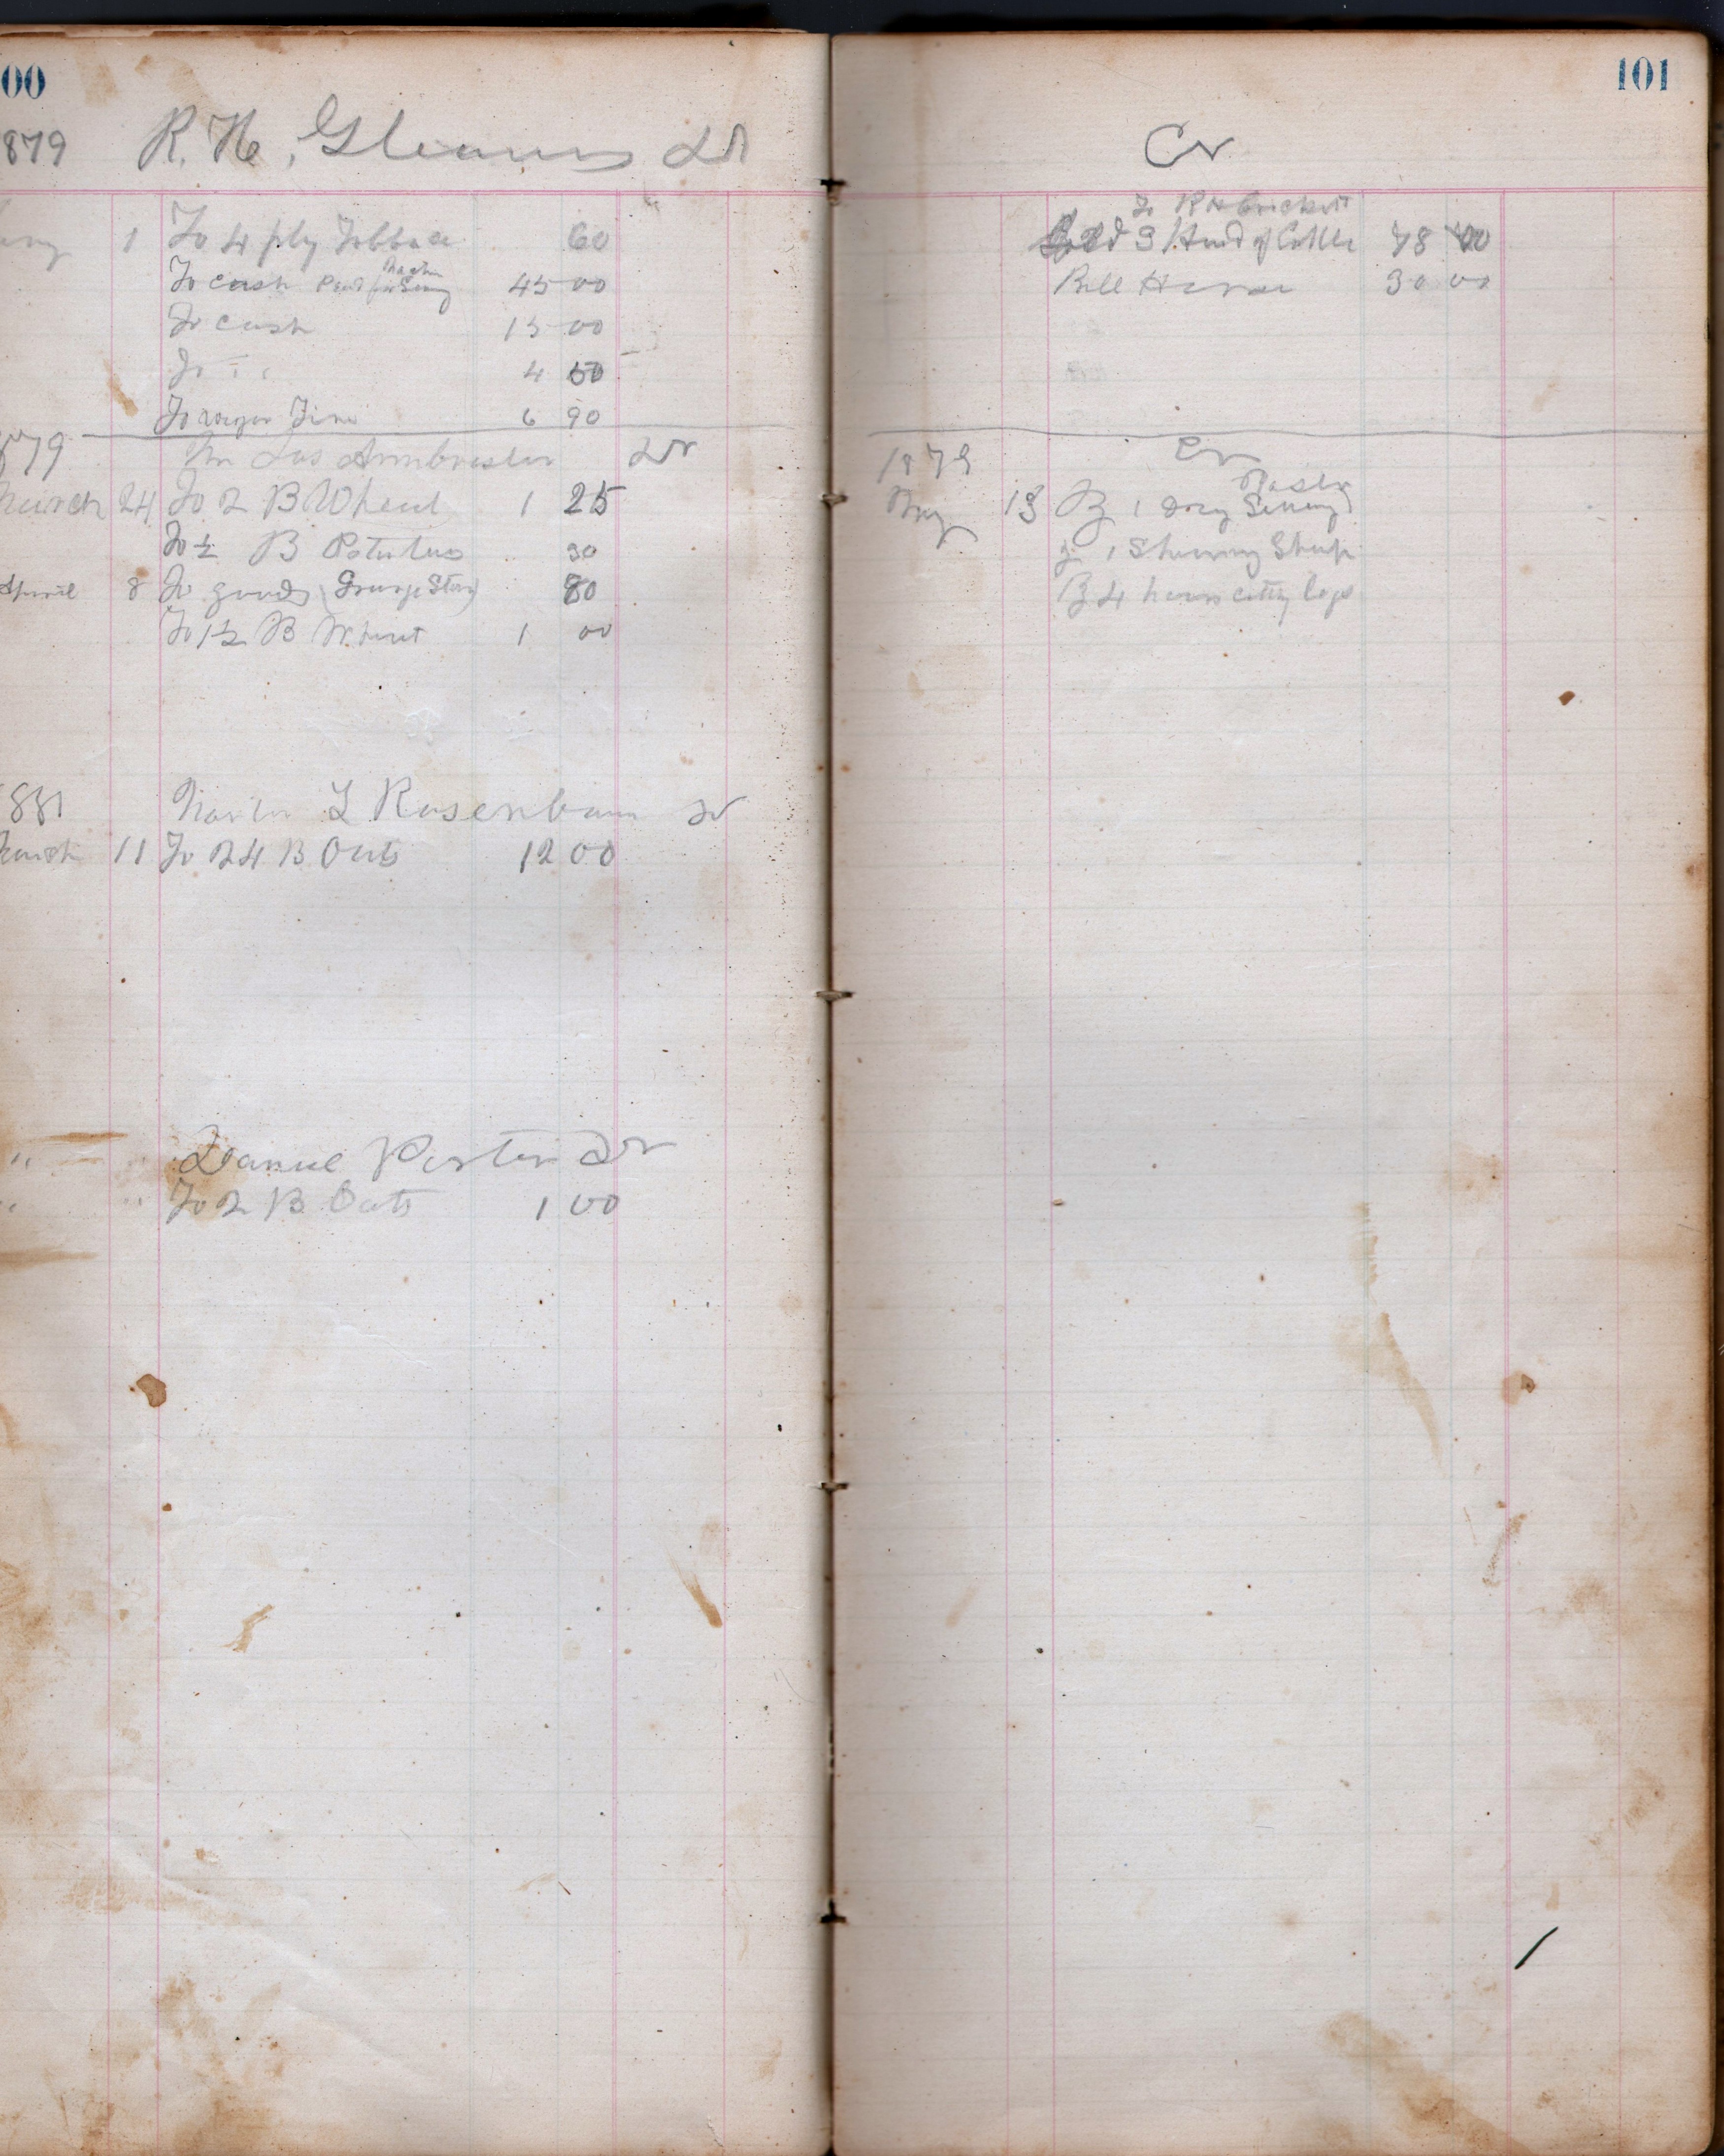 00
879 R. H. Gleaves Dr
1 To 4 plg Tobbaco 60
To cash Paid for 45 00
To cash 15 00
To " " 4 50
To wagon Tire 6 90
879 Armbrester Dr
March 24 To 2 B Wheat 1 25
To ½ B Potatoes 30
April 8 To goods (Grange Store) 80
To 1½ B Wheat 1 00
881 L Rosenbaum Dr
March 11 To 24 B Oats 12 00
" " Daniel Porter Dr
" " To 2 B Oats 1 00
101
Cr
To R H
3 Head of Cattle 78 00
Bill Horse 30 00
1879 Cr
May 13 By 1 Day
1 Shearing Sheep
By 4 hours cutting logs